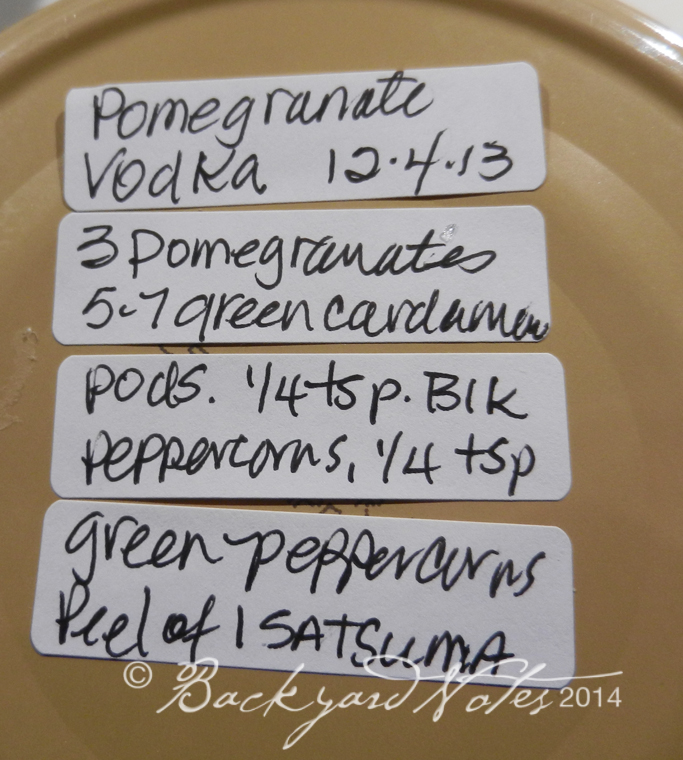 Pomegranate
Vodka 12.4.13
3 Pomegranates
5-7 green cardamom
pods. 1/4 tsp. Blk
peppercorns, 1/4 tsp
green peppercorns
Peel of 1 SATSUMA
© Backyard Notes 2014